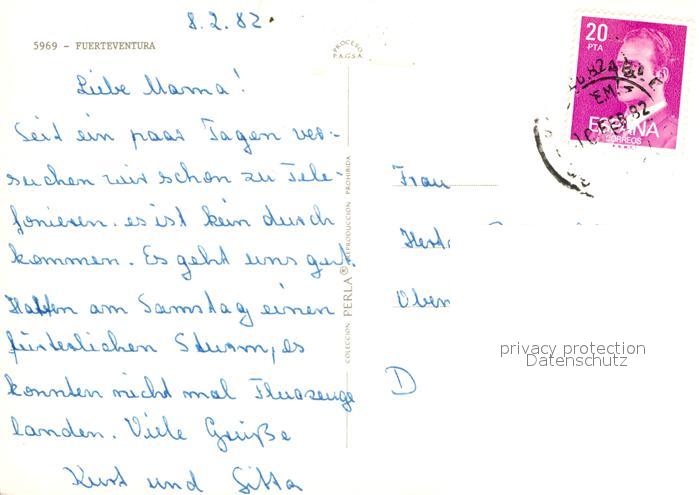 8.2.82
5969 - FUERTEVENTURA
Liebe Mama!
Seit ein paar Tagen ver-
suchen wir schon zu Tele-
fonieren. es ist kein durch
kommen. Es geht uns gut.
Hatten am Samstag einen
fürterlichen Sturm, es
konnten nicht mal Flugzeuge
landen. Viele Grüße
Kurt und Gitta
PROCESO
P.A.G.S.A.
COLECCION PERLA® REPRODUCCION PROHIBIDA
20
PTA
ESPAÑA
CORREOS
10 FEB 82
Frau
Hert
Ober
D
privacy protection
Datenschutz